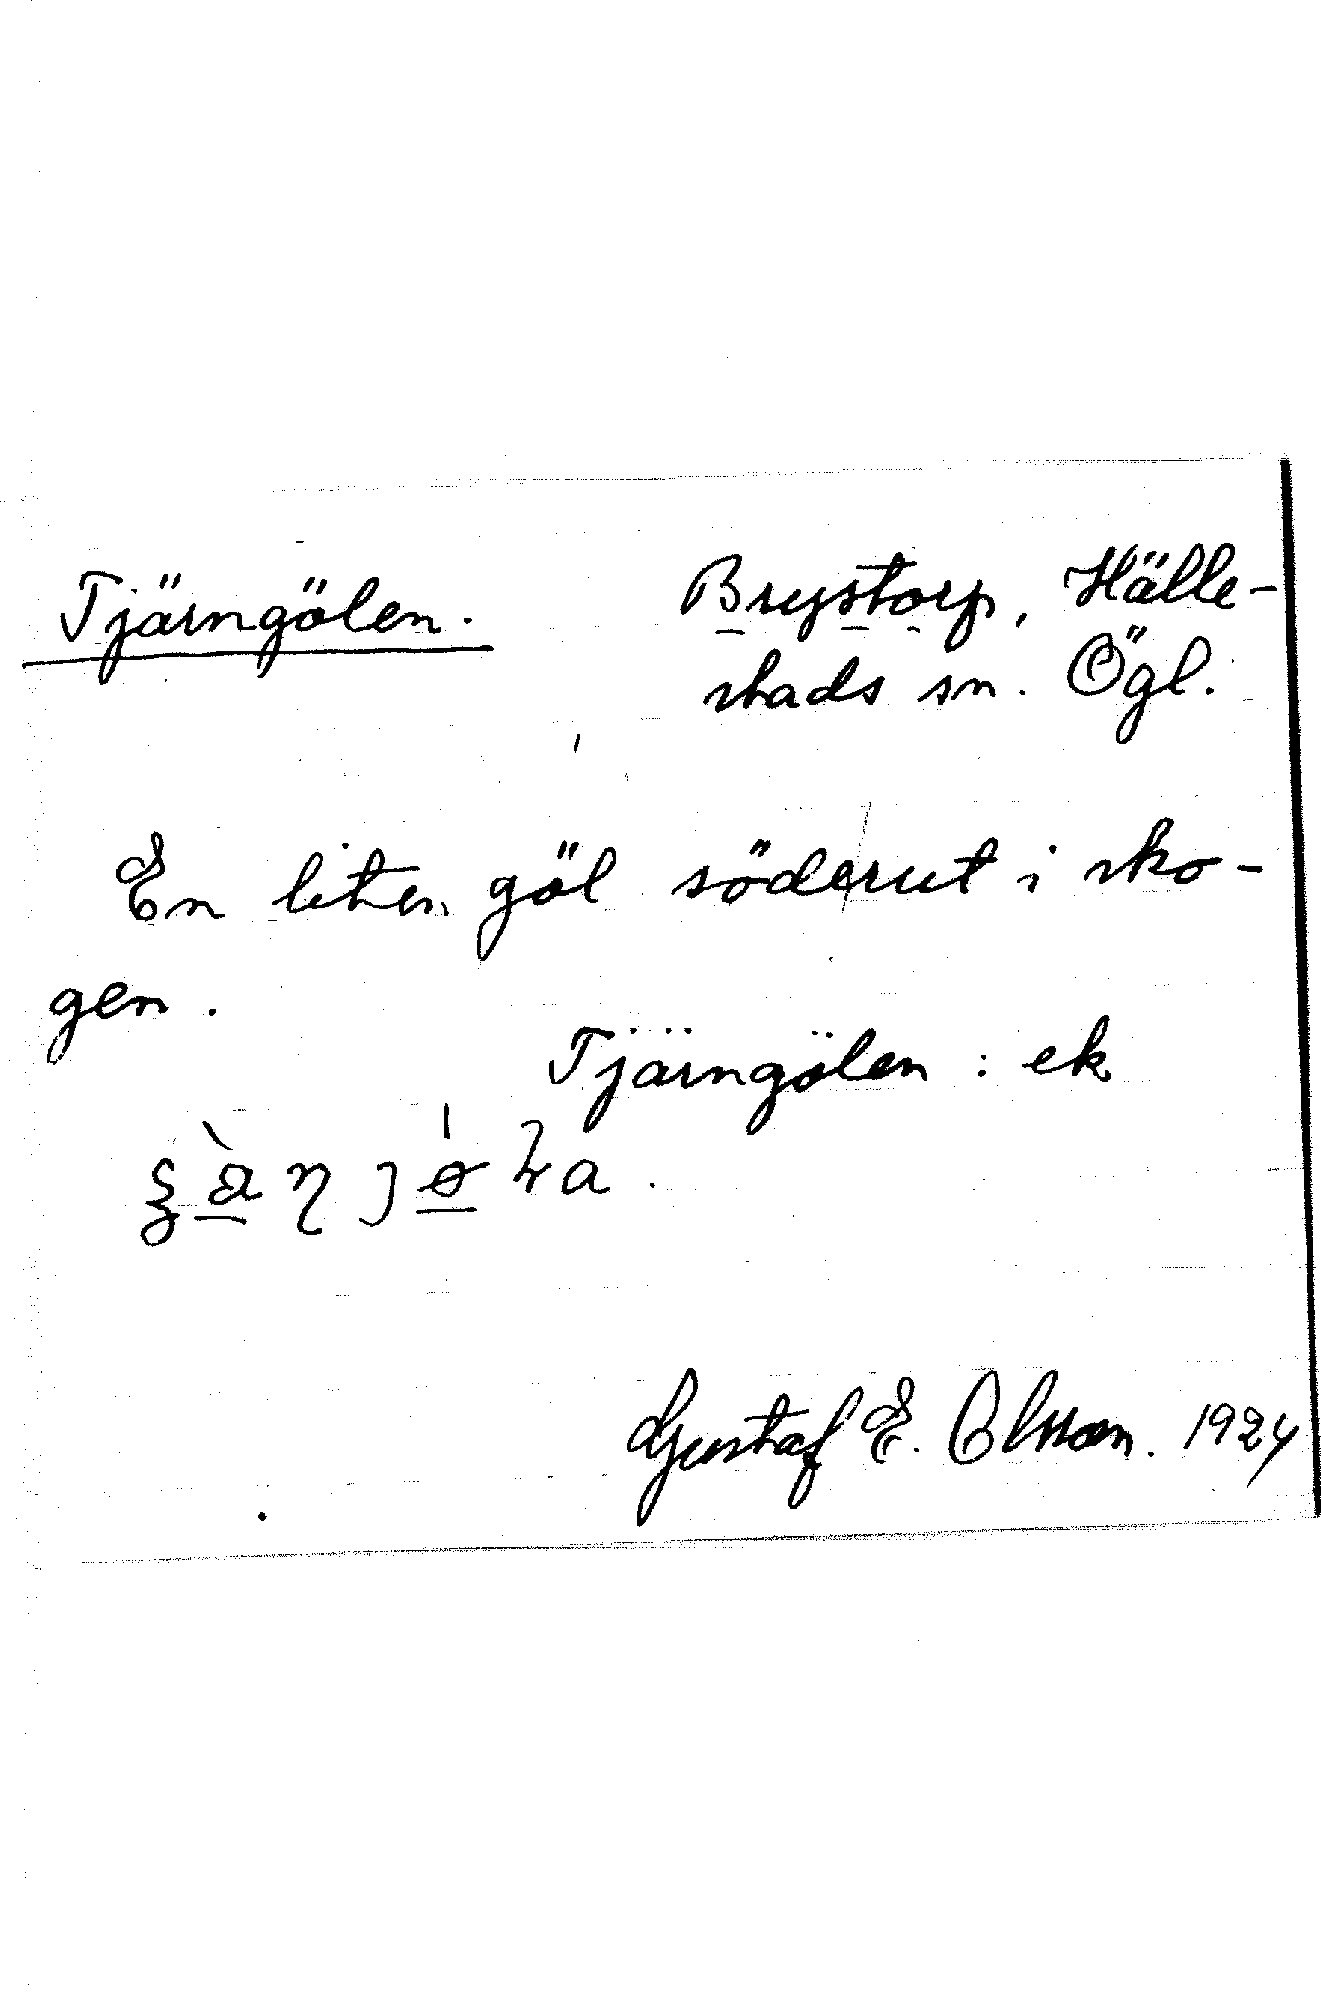 Tjärngölen. Brystorp, Hälle-
stads sn. Ögl.
En liten göl söderut i sko-
gen.
Tjärngölen: ek
Gustaf E. Olsson. 1924